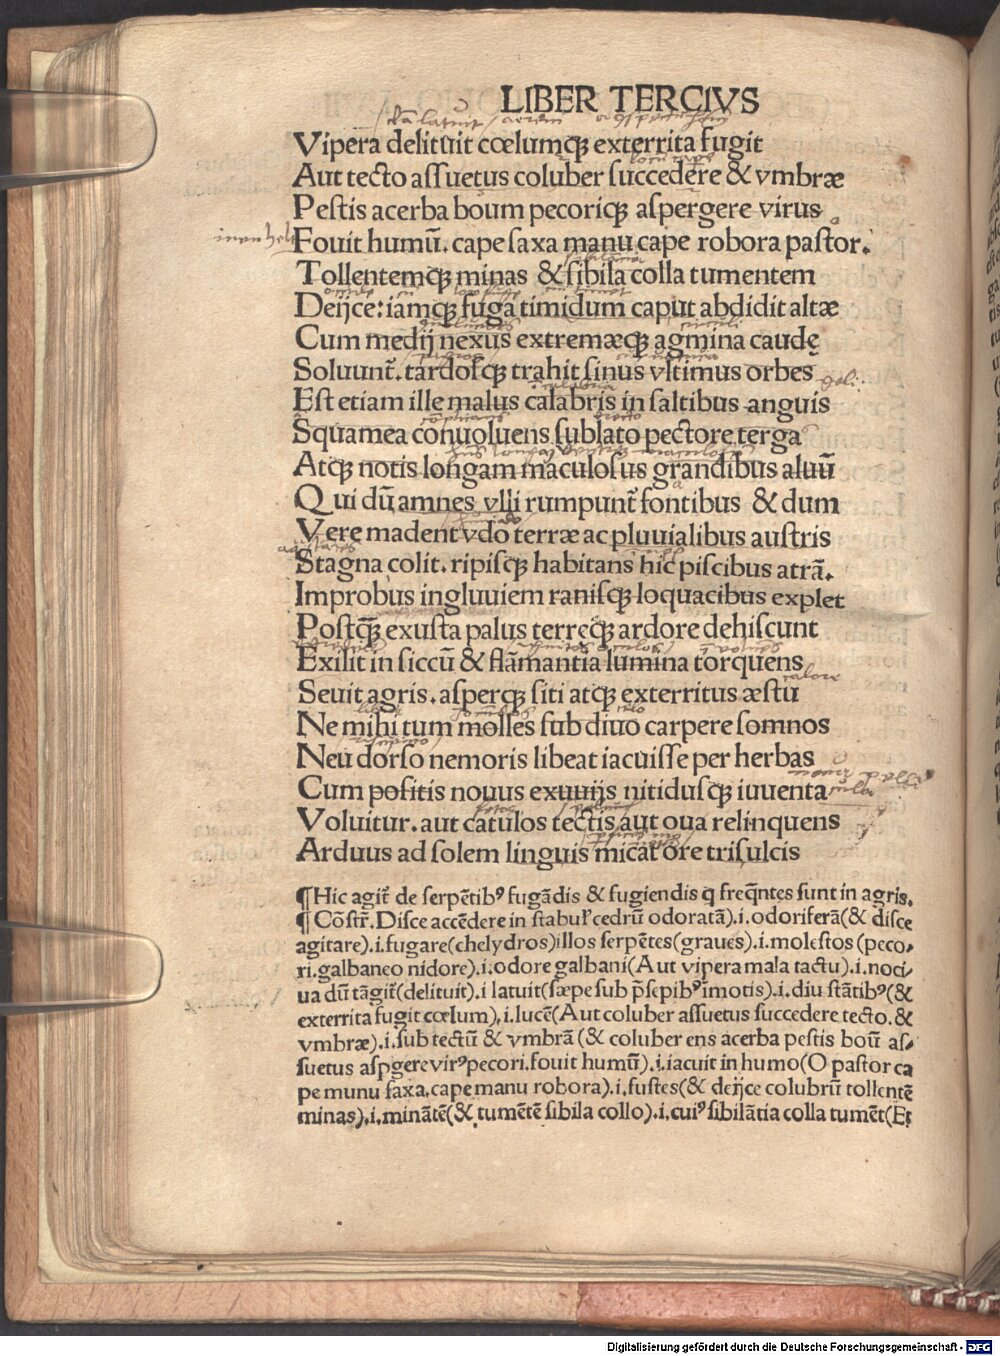 LIBER TERCIVS
Vipera delituit cœlumqȝ exterrita fugit
Aut tecto aſſuetus coluber ſuccedere & vmbræ
Peſtis acerba boum pecoriqȝ aſpergere virus
Fouit humū. cape ſaxa manu cape robora paſtor.
Tollentemqȝ minas & ſibila colla tumentem
Deijce: iamqȝ fuga timidum caput abdidit altæ
Cum medij nexus extremæqȝ agmina caudę
Soluunt̃. tardoſqȝ trahit ſinus vltimus orbes
Eſt etiam ille malus calabris in ſaltibus anguis
Squamea conuoluens ſublato pectore terga
Atqȝ notis longam maculoſus grandibus aluū
Qui dū amnes vlli rumpunt̃ fontibus & dum
Vere madent vdo terræ ac pluuialibus auſtris
Stagna colit. ripiſqȝ habitans hic piſcibus atrā.
Improbus ingluuiem raniſqȝ loquacibus explet
Poſtqȝ̄ exuſta palus terręqȝ ardore dehiſcunt
Exilit in ſiccū & flāmantia lumina torquens
Seuit agris. aſperqȝ ſiti atqȝ exterritus æſtu
Ne mihi tum molles ſub diuo carpere ſomnos
Neu dorſo nemoris libeat iacuiſſe per herbas
Cum poſitis nouus exuuijs nitiduſqȝ iuuenta
Voluitur. aut catulos tectis aut oua relinquens
Arduus ad ſolem linguis micat ore triſulcis
¶ Hic agit̃ de ſerpētibꝰ fugādis & fugiendis q freq̄ntes ſunt in agris.
¶ Cōſtr̃. Diſce accēdere in ſtabuł cedrū odoratā).i.odoriferā(& diſce
agitare).i.fugare(chelydros)illos ſerpētes(graues).i.moleſtos (peco⸗
ri.galbaneo nidore).i.odore galbani(Aut vipera mala tactu).i.noci⸗
ua dū tāgit̃(delituit).i latuit(ſæpe ſub p̄ſepibꝰ īmotis).i.diu ſtātibꝰ(&
exterrita fugit cœlum).i.lucē(Aut coluber aſſuetus ſuccedere tecto.&
vmbræ).i.ſub tectū & vmbrā (& coluber ens acerba peſtis boū aſ⸗
ſuetus aſpgere virꝰ pecori.fouit humū).i.iacuit in humo(O paſtor ca
pe munu ſaxa.cape manu robora).i.fuſtes(& deijce colubrū tollentē
minas).i.minātē(& tumētē ſibila collo).i.cuiꝰ ſibilātia colla tumēt(Et
Digitalisierung gefördert durch die Deutsche Forschungsgemeinschaft - DFG